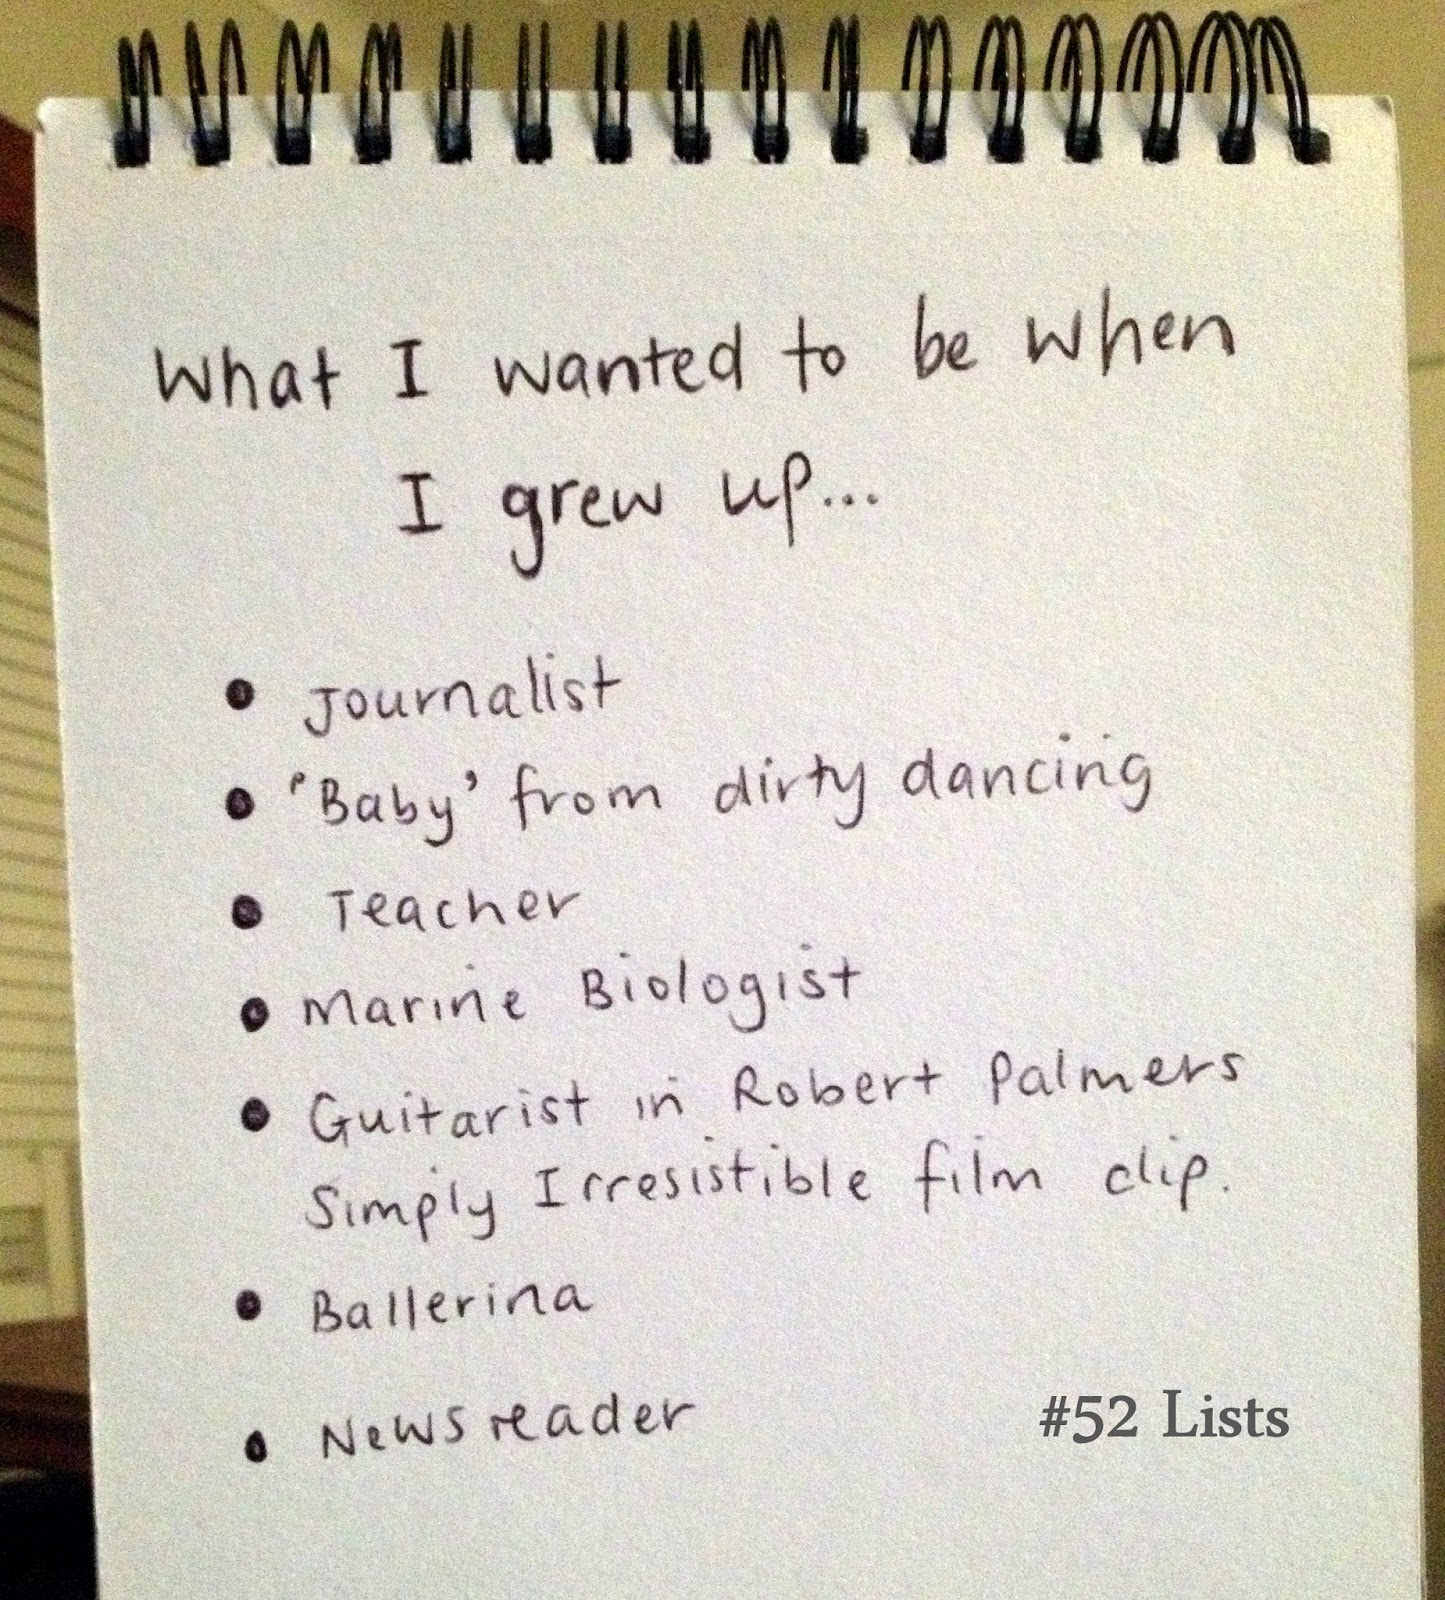 What I wanted to be when
I grew up...
• Journalist
• 'Baby' from dirty dancing
• Teacher
• Marine Biologist
• Guitarist in Robert Palmers
Simply Irresistible film clip.
• Ballerina
• Newsreader
#52 Lists